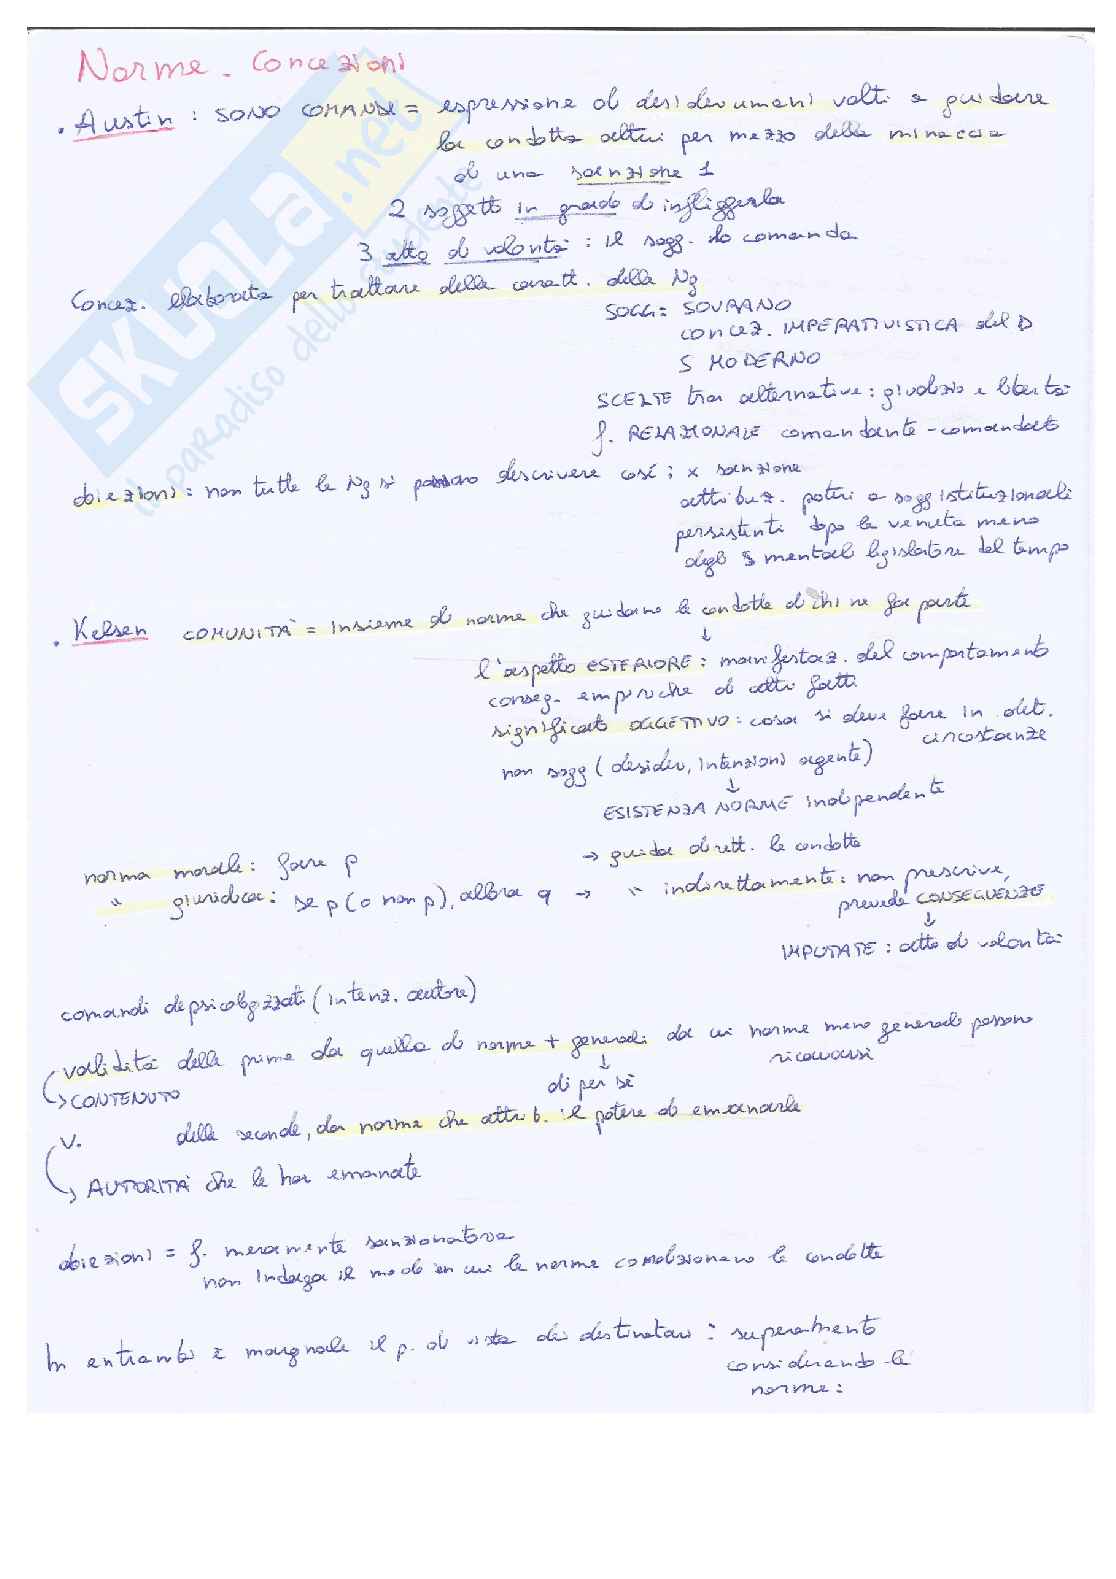 Norme - Concezioni
• Austin : SONO COMANDI = espressione di desiderumani volti a guidare
la condotta altrui per mezzo della minaccia
di una sanzione 1
2 soggetto in grado di infliggerla
3 atto di volontà : il sogg. lo comanda
Concez. elaborata per trattare della caratt. della Ng
SOGG = SOVRANO
concez. IMPERATIVISTICA del D
S MODERNO
SCELTE tra alternative : giudizio e libertà
f. RELAZIONALE comandante - comandato
obiezioni : non tutte le Ng si possono descrivere così ; x sanzione
attribuz. poteri a sogg istituzionali
persistenti dopo la venuta meno
degli S mentali legislatore del tempo
• Kelsen COMUNITÀ = insieme di norme che guidano le condotte di chi ne fa parte
↓
l'aspetto ESTERIORE : manifestaz. del comportamento
conseg. empiriche di altri fatti
significato OGGETTIVO : cosa si deve fare in det.
circostanze
non sogg (desider, intenzioni agente)
↓
ESISTENZA NORME indipendente
norma morale : fare p → guida dirett. le condotte
" giuridica : se p (o non p), allora q → " indirettamente : non prescrive,
prevede CONSEGUENZE
↓
IMPUTATE : atto di volontà
comandi depsicologizzati (intenz. autore)
validità delle prime da quella di norme + generali da cui norme meno generali possono
ricavarsi
↓
↳ CONTENUTO di per sé
V. delle seconde, da norma che attrib. il potere di emanarle
↳ AUTORITÀ che le ha emanate
obiezioni = f. meramente sanzionatoria
non indaga il modo in cui le norme condizionano le condotte
In entrambi è marginale il p. di vista dei destinatari : superamento
considerando le
norme :
SKUOLA.net
il paradiso dello studente